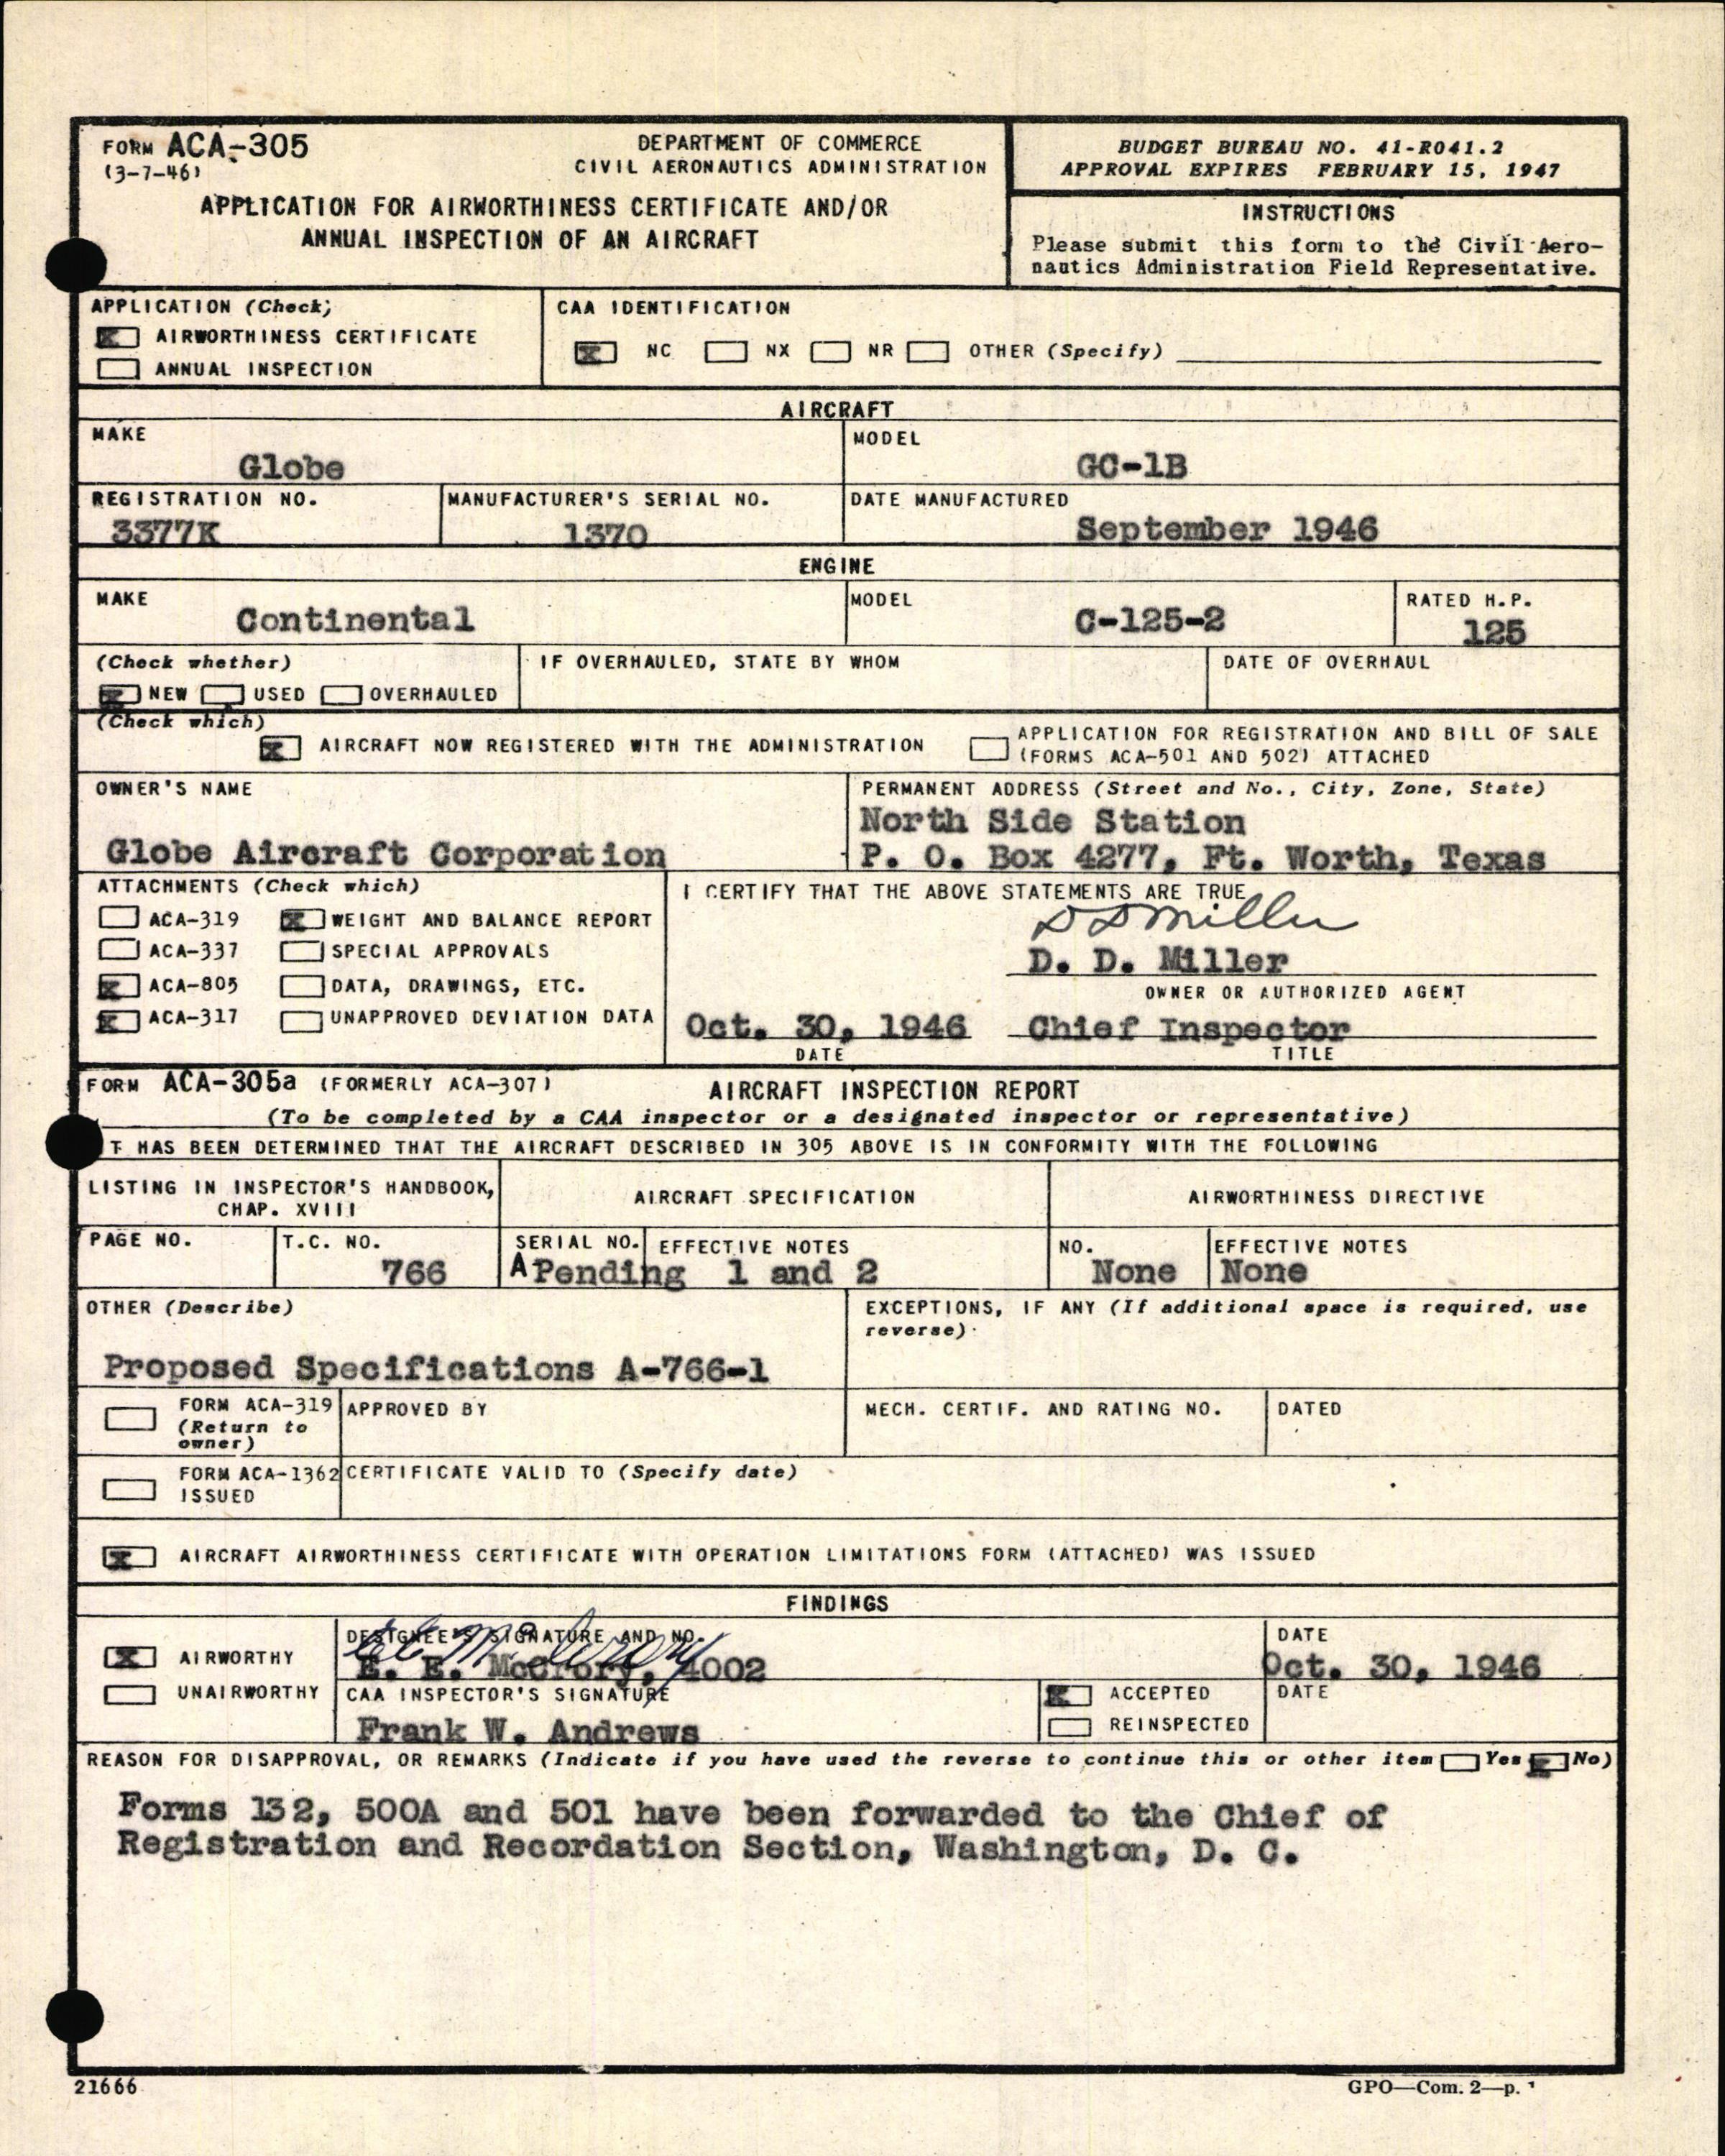 FORM ACA-305
(3-7-46)
DEPARTMENT OF COMMERCE
CIVIL AERONAUTICS ADMINISTRATION
APPLICATION FOR AIRWORTHINESS CERTIFICATE AND/OR
ANNUAL INSPECTION OF AN AIRCRAFT
BUDGET BUREAU NO. 41-R041.2
APPROVAL EXPIRES FEBRUARY 15, 1947
INSTRUCTIONS
Please submit this form to the Civil Aero-
nautics Administration Field Representative.
APPLICATION (Check)
X AIRWORTHINESS CERTIFICATE
ANNUAL INSPECTION
CAA IDENTIFICATION
X NC NX NR OTHER (Specify)
AIRCRAFT
MAKE
Globe
MODEL
GC-1B
REGISTRATION NO.
3377K
MANUFACTURER'S SERIAL NO.
1370
DATE MANUFACTURED
September 1946
ENGINE
MAKE
Continental
MODEL
C-125-2
RATED H.P.
125
(Check whether)
X NEW USED OVERHAULED
IF OVERHAULED, STATE BY WHOM
DATE OF OVERHAUL
(Check which)
X AIRCRAFT NOW REGISTERED WITH THE ADMINISTRATION
APPLICATION FOR REGISTRATION AND BILL OF SALE
(FORMS ACA-501 AND 502) ATTACHED
OWNER'S NAME
Globe Aircraft Corporation
PERMANENT ADDRESS (Street and No., City, Zone, State)
North Side Station
P. O. Box 4277, Ft. Worth, Texas
ATTACHMENTS (Check which)
ACA-319 X WEIGHT AND BALANCE REPORT
ACA-337 SPECIAL APPROVALS
X ACA-805 DATA, DRAWINGS, ETC.
X ACA-317 UNAPPROVED DEVIATION DATA
I CERTIFY THAT THE ABOVE STATEMENTS ARE TRUE
D D Miller
D. D. Miller
OWNER OR AUTHORIZED AGENT
Oct. 30, 1946 Chief Inspector
DATE TITLE
FORM ACA-305a (FORMERLY ACA-307) AIRCRAFT INSPECTION REPORT
(To be completed by a CAA inspector or a designated inspector or representative)
T HAS BEEN DETERMINED THAT THE AIRCRAFT DESCRIBED IN 305 ABOVE IS IN CONFORMITY WITH THE FOLLOWING
LISTING IN INSPECTOR'S HANDBOOK,
CHAP. XVIII
AIRCRAFT SPECIFICATION
AIRWORTHINESS DIRECTIVE
PAGE NO.
T.C. NO.
766
SERIAL NO. EFFECTIVE NOTES
A Pending 1 and 2
NO.
None
EFFECTIVE NOTES
None
OTHER (Describe)
Proposed Specifications A-766-1
EXCEPTIONS, IF ANY (If additional space is required, use
reverse)
FORM ACA-319
(Return to
owner)
APPROVED BY
MECH. CERTIF. AND RATING NO.
DATED
FORM ACA-1362
ISSUED
CERTIFICATE VALID TO (Specify date)
X AIRCRAFT AIRWORTHINESS CERTIFICATE WITH OPERATION LIMITATIONS FORM (ATTACHED) WAS ISSUED
FINDINGS
X AIRWORTHY
UNAIRWORTHY
DESIGNEE'S SIGNATURE AND NO.
E. E. McCrory, 4002
DATE
Oct. 30, 1946
CAA INSPECTOR'S SIGNATURE
Frank W. Andrews
X ACCEPTED
REINSPECTED
DATE
REASON FOR DISAPPROVAL, OR REMARKS (Indicate if you have used the reverse to continue this or other item Yes X No)
Forms 132, 500A and 501 have been forwarded to the Chief of
Registration and Recordation Section, Washington, D. C.
21666
GPO—Com. 2—p.